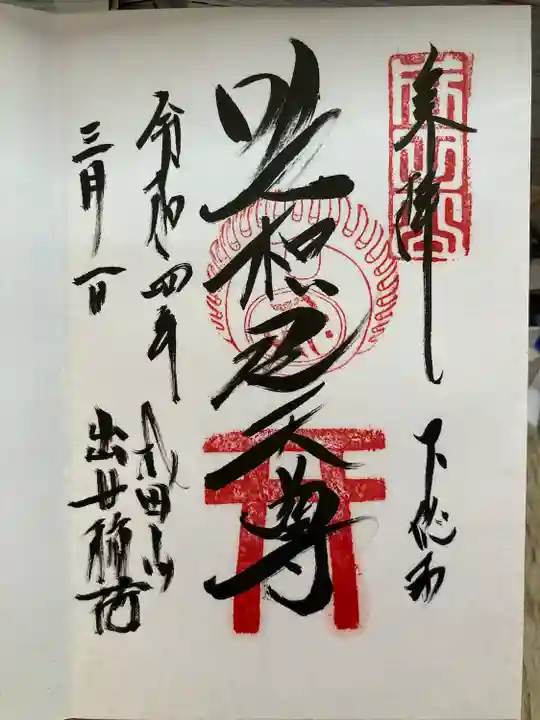 奉拝
下総国
吒枳尼天尊
令和四年
成田山
三月一日
出世稲荷